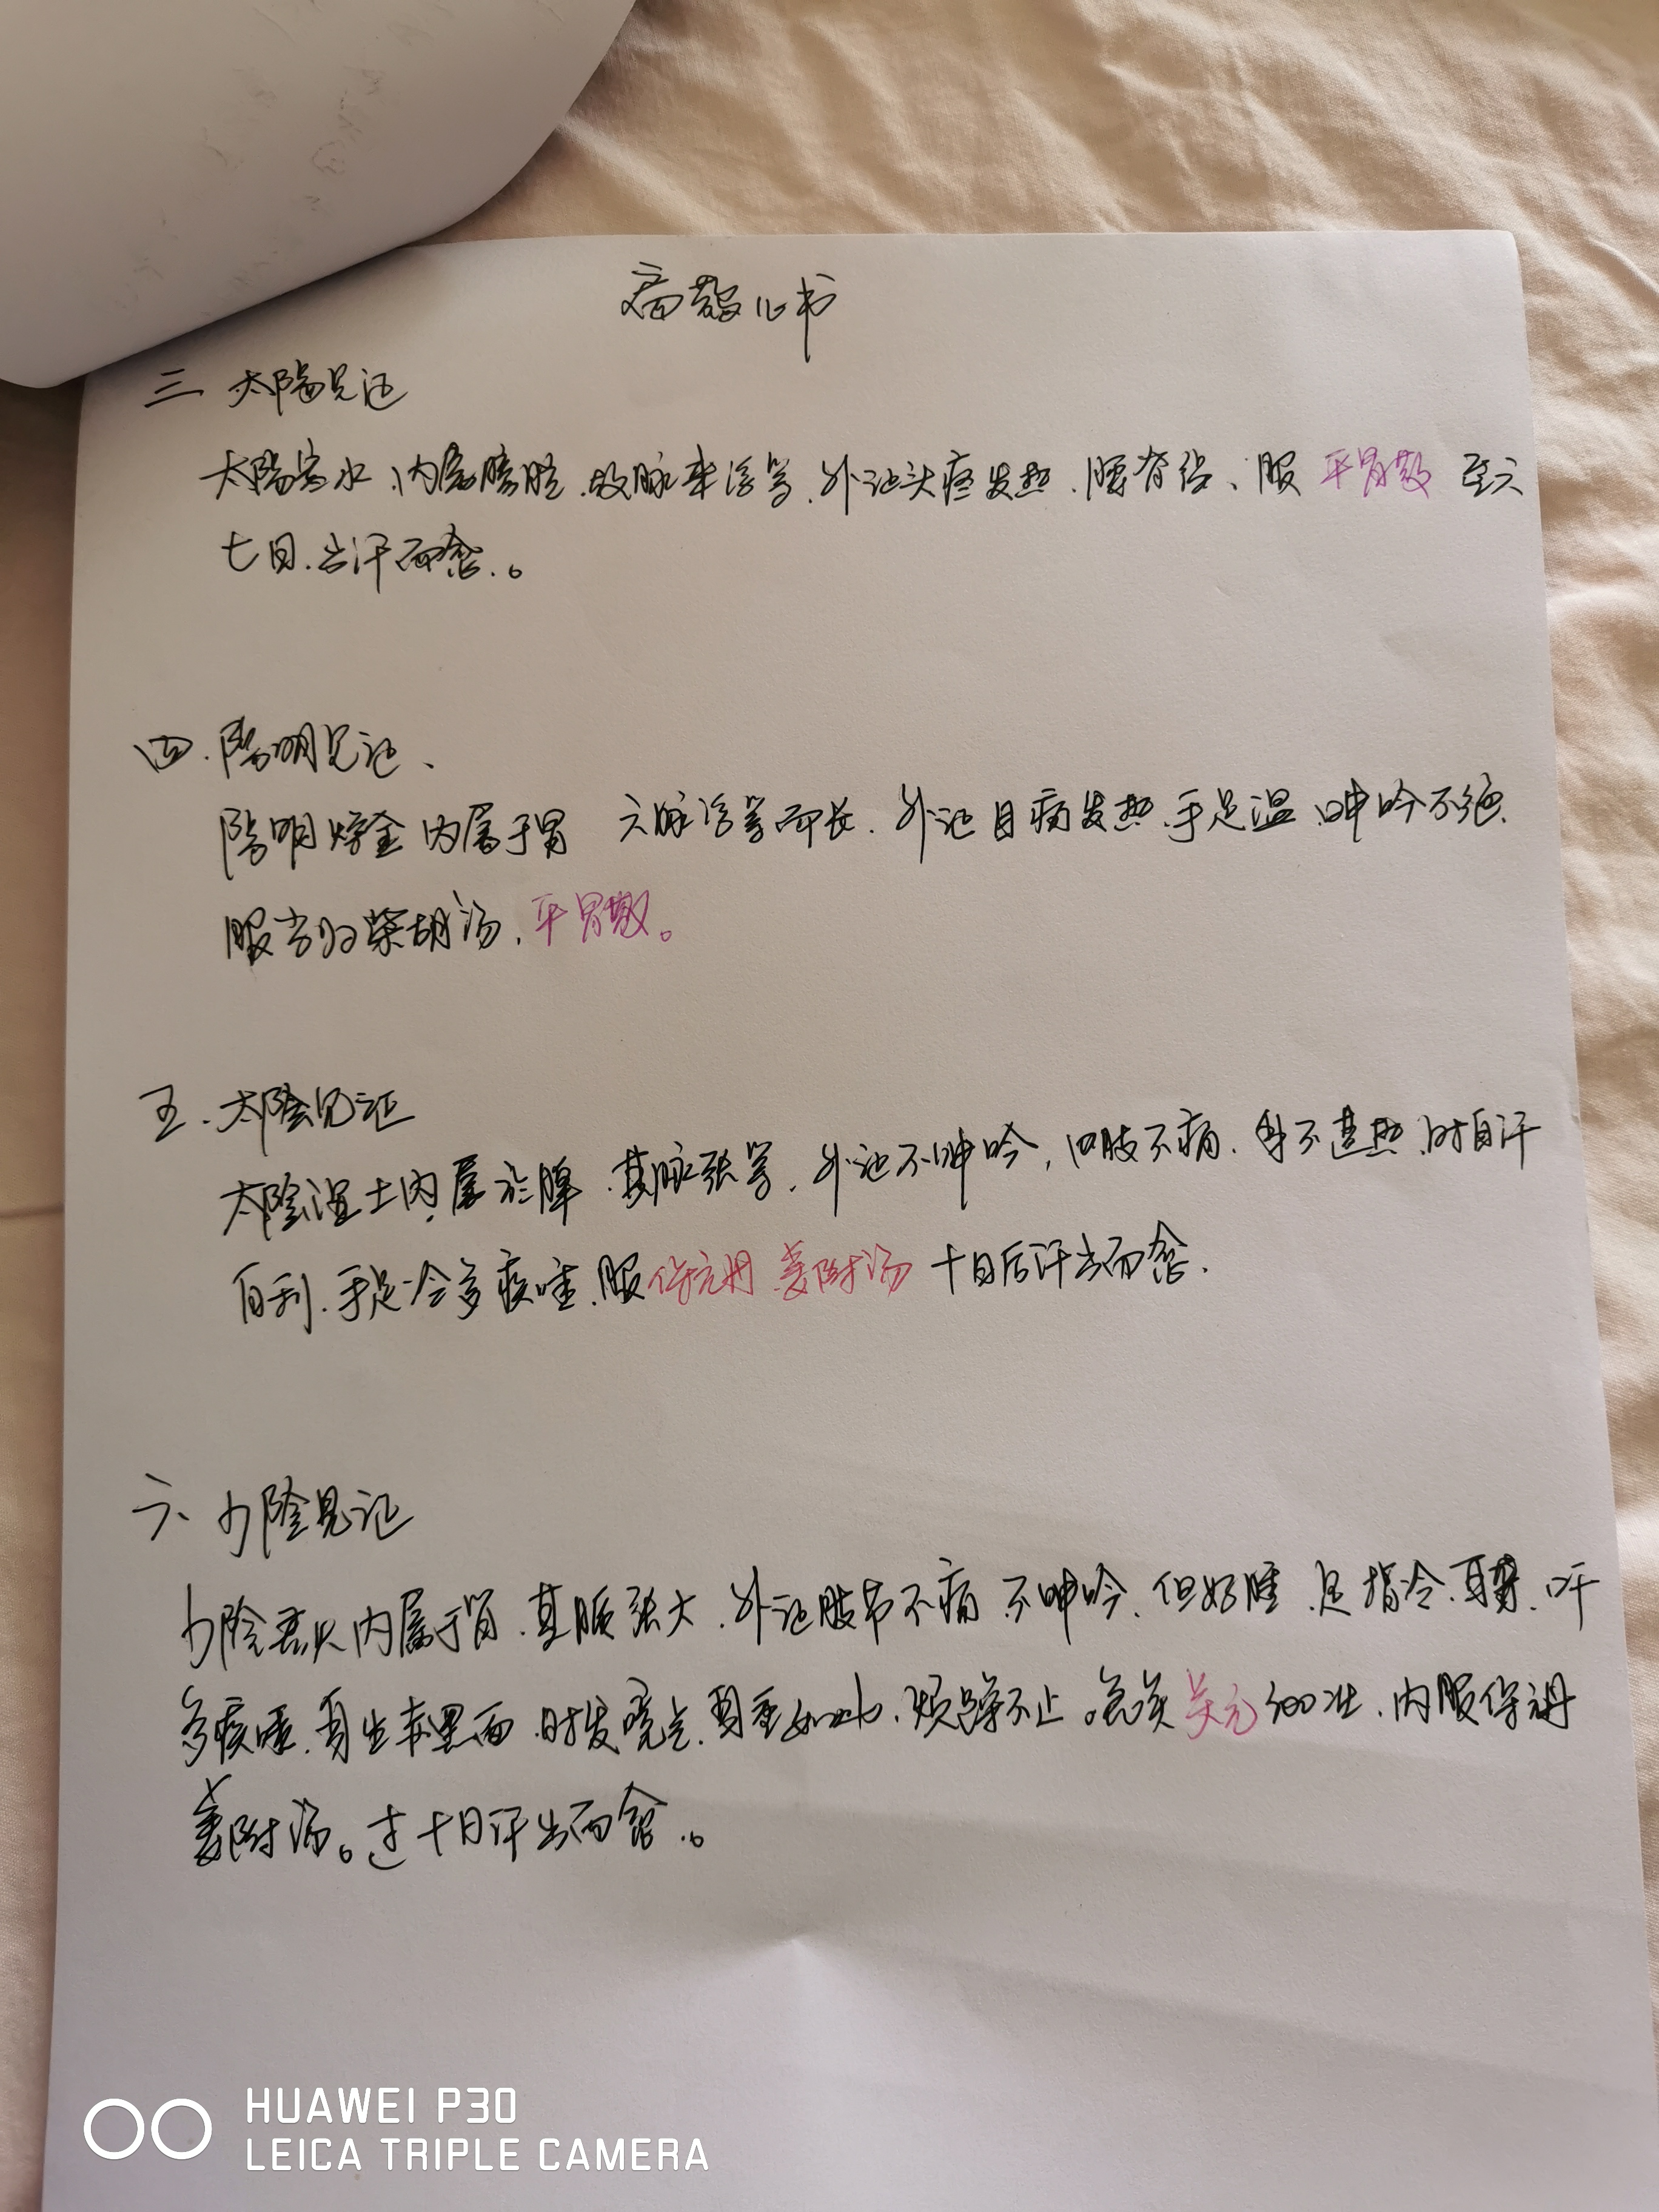 扁鹊心书
三 太陽见证
太陽寒水、内属膀胱.故脉来浮紧.外证头疼发热.腰脊强、服平胃散 至六
七日.出汗而愈.。
四.陽明见证、
陽明燥金 内属于胃 六脉浮紧而长.外证目痛发热.手足温.呻吟不绝.
服当归柴胡汤.平胃散。
五.太陰见证
太陰湿土内属於脾.其脉弦紧.外证不呻吟,四肢不痛.身不甚热.时自汗
自利.手足冷多痰唾.服保元丹 姜附汤 十日后汗出而愈.
六、少陰见证
少陰君火内属于肾.其脉弦大.外证肢节不痛 不呻吟.但好睡.足指冷.耳聋.口干
多痰唾.身生赤黑 时发 身重如山.烦躁不止。急灸关元300壮.内服保元丹
姜附汤。过十日汗出而愈.。
HUAWEI P30
LEICA TRIPLE CAMERA